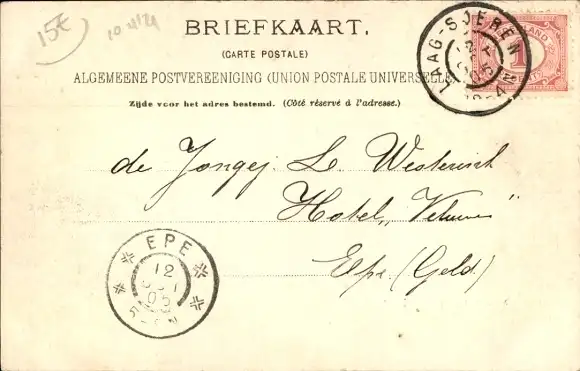 15€
BRIEFKAART.
(CARTE POSTALE)
ALGEMEENE POSTVEREENIGING (UNION POSTALE UNIVERSELLE)
Zijde voor het adres bestemd. (Côté réservé à l'adresse.)
LAAG-SJEREN
1
de Jongej. L. Westerink
Hotel „Veluwe"
Epe. (Geld.)
EPE
12
05